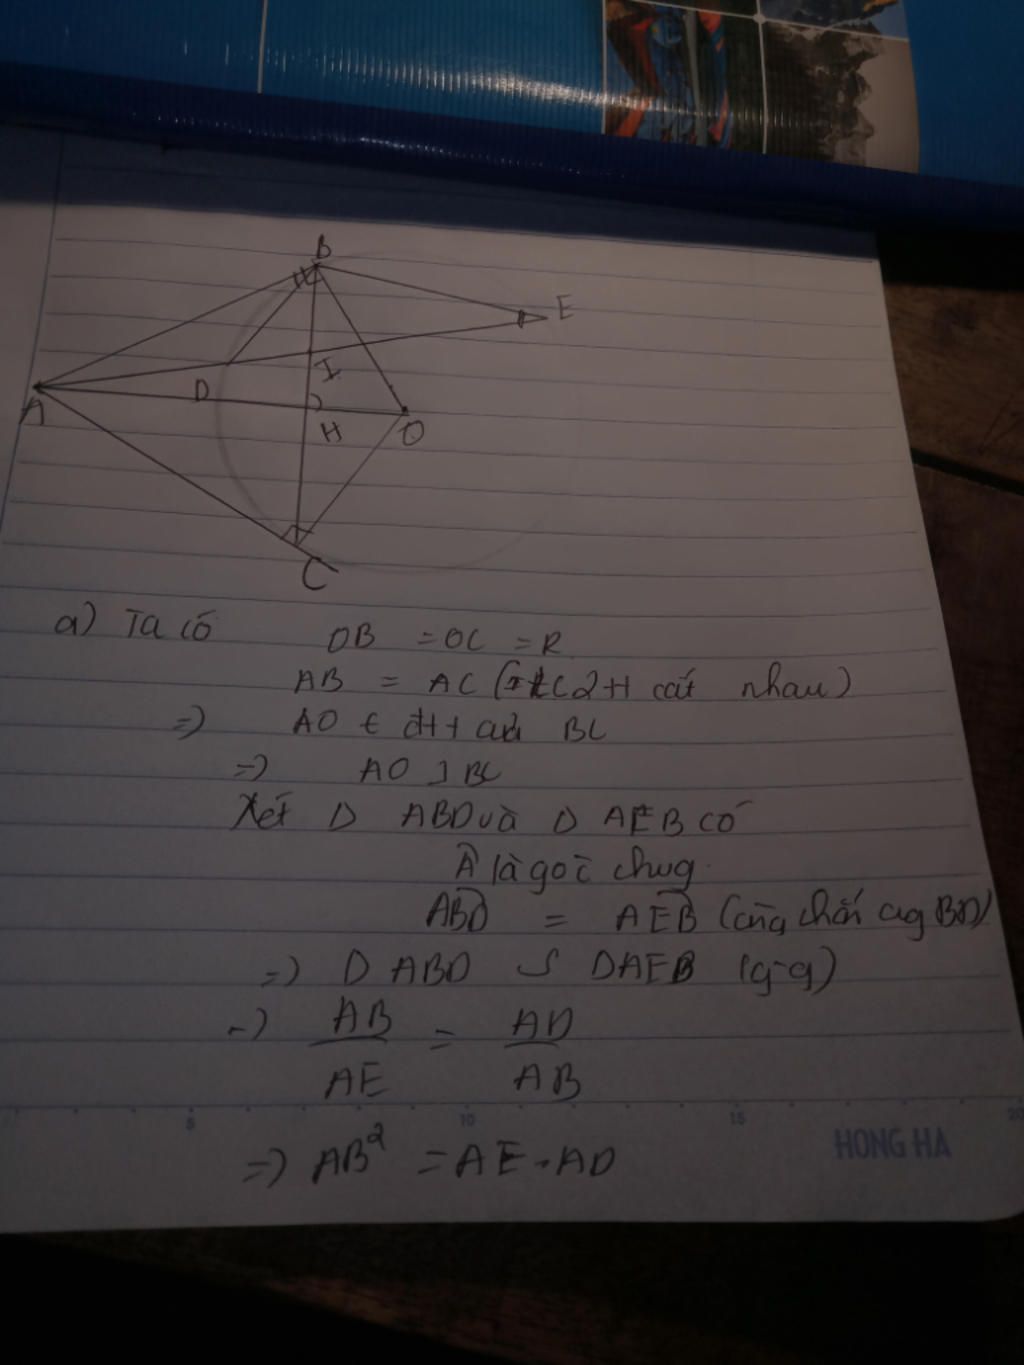 B
E
I
D
A
H
O
C
a) Ta có OB = OC = R
AB = AC ( 2 tt cắt nhau)
=> AO € đtt của BC
=> AO ⊥ BC
Xét Δ ABD và Δ AEB có
Â là góc chug
ABD = AEB (cùng chắn cug BD)
=> Δ ABD ∽ ΔAEB (g-g)
=> AB/AE = AD/AB
=> AB² = AE . AD
5 10 15 20
HONG HA